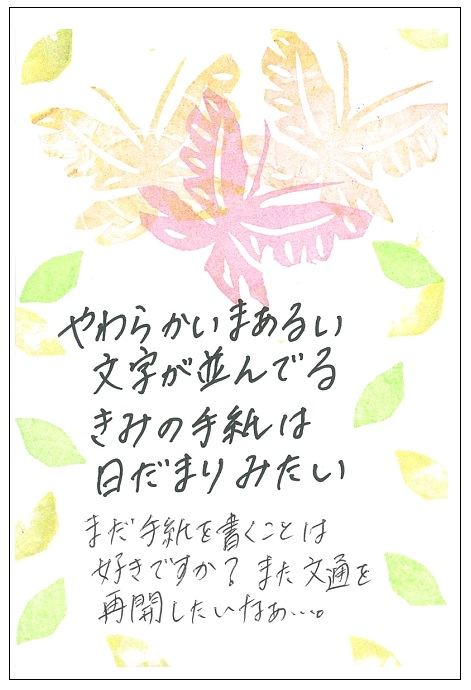 やわらかいまあるい
文字が並んでる
きみの手紙は
日だまりみたい
まだ手紙を書くことは
好きですか？また文通を
再開したいなぁ…。